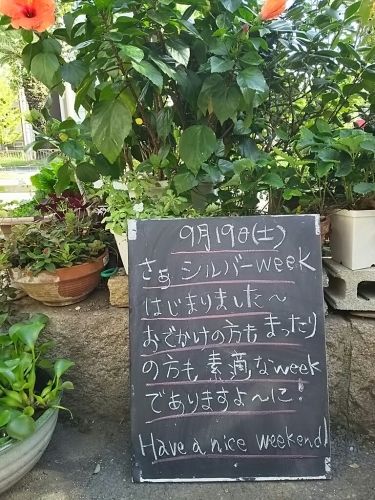 9月19日(土)
さぁ シルバーweek
はじまりました〜
おでかけの方も まったり
の方も 素敵なweek
でありますよ〜に!
Have a nice weekend!